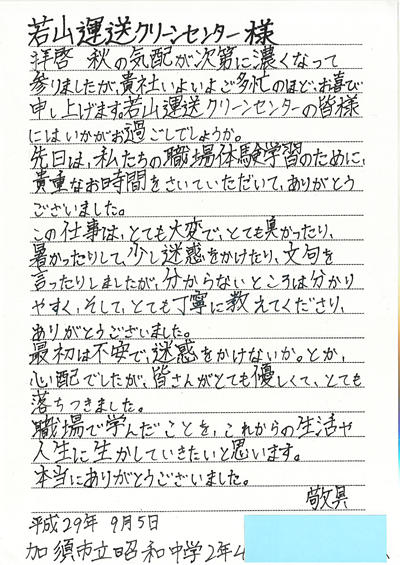 若山運送クリーンセンター様
拝啓 秋の気配が次第に濃くなって
参りましたが、貴社いよいよご多忙のほど、お喜び
申し上げます。若山運送クリーンセンターの皆様
にはいかがお過ごしでしょうか。
先日は、私たちの職場体験学習のために、
貴重なお時間をさいていただいて、ありがとう
ございました。
この仕事は、とても大変で、とても臭かったり、
暑かったりして、少し迷惑をかけたり、文句を
言ったりしましたが、分からないところは分かり
やすく、そして、とても丁寧に教えてくださり、
ありがとうございました。
最初は不安で、迷惑をかけないか。とか、
心配でしたが、皆さんがとても優しくて、とても
落ちつきました。
職場で学んだことを、これからの生活や
人生に生かしていきたいと思います。
本当にありがとうございました。
敬具
平成29年 9月5日
加須市立昭和中学2年4